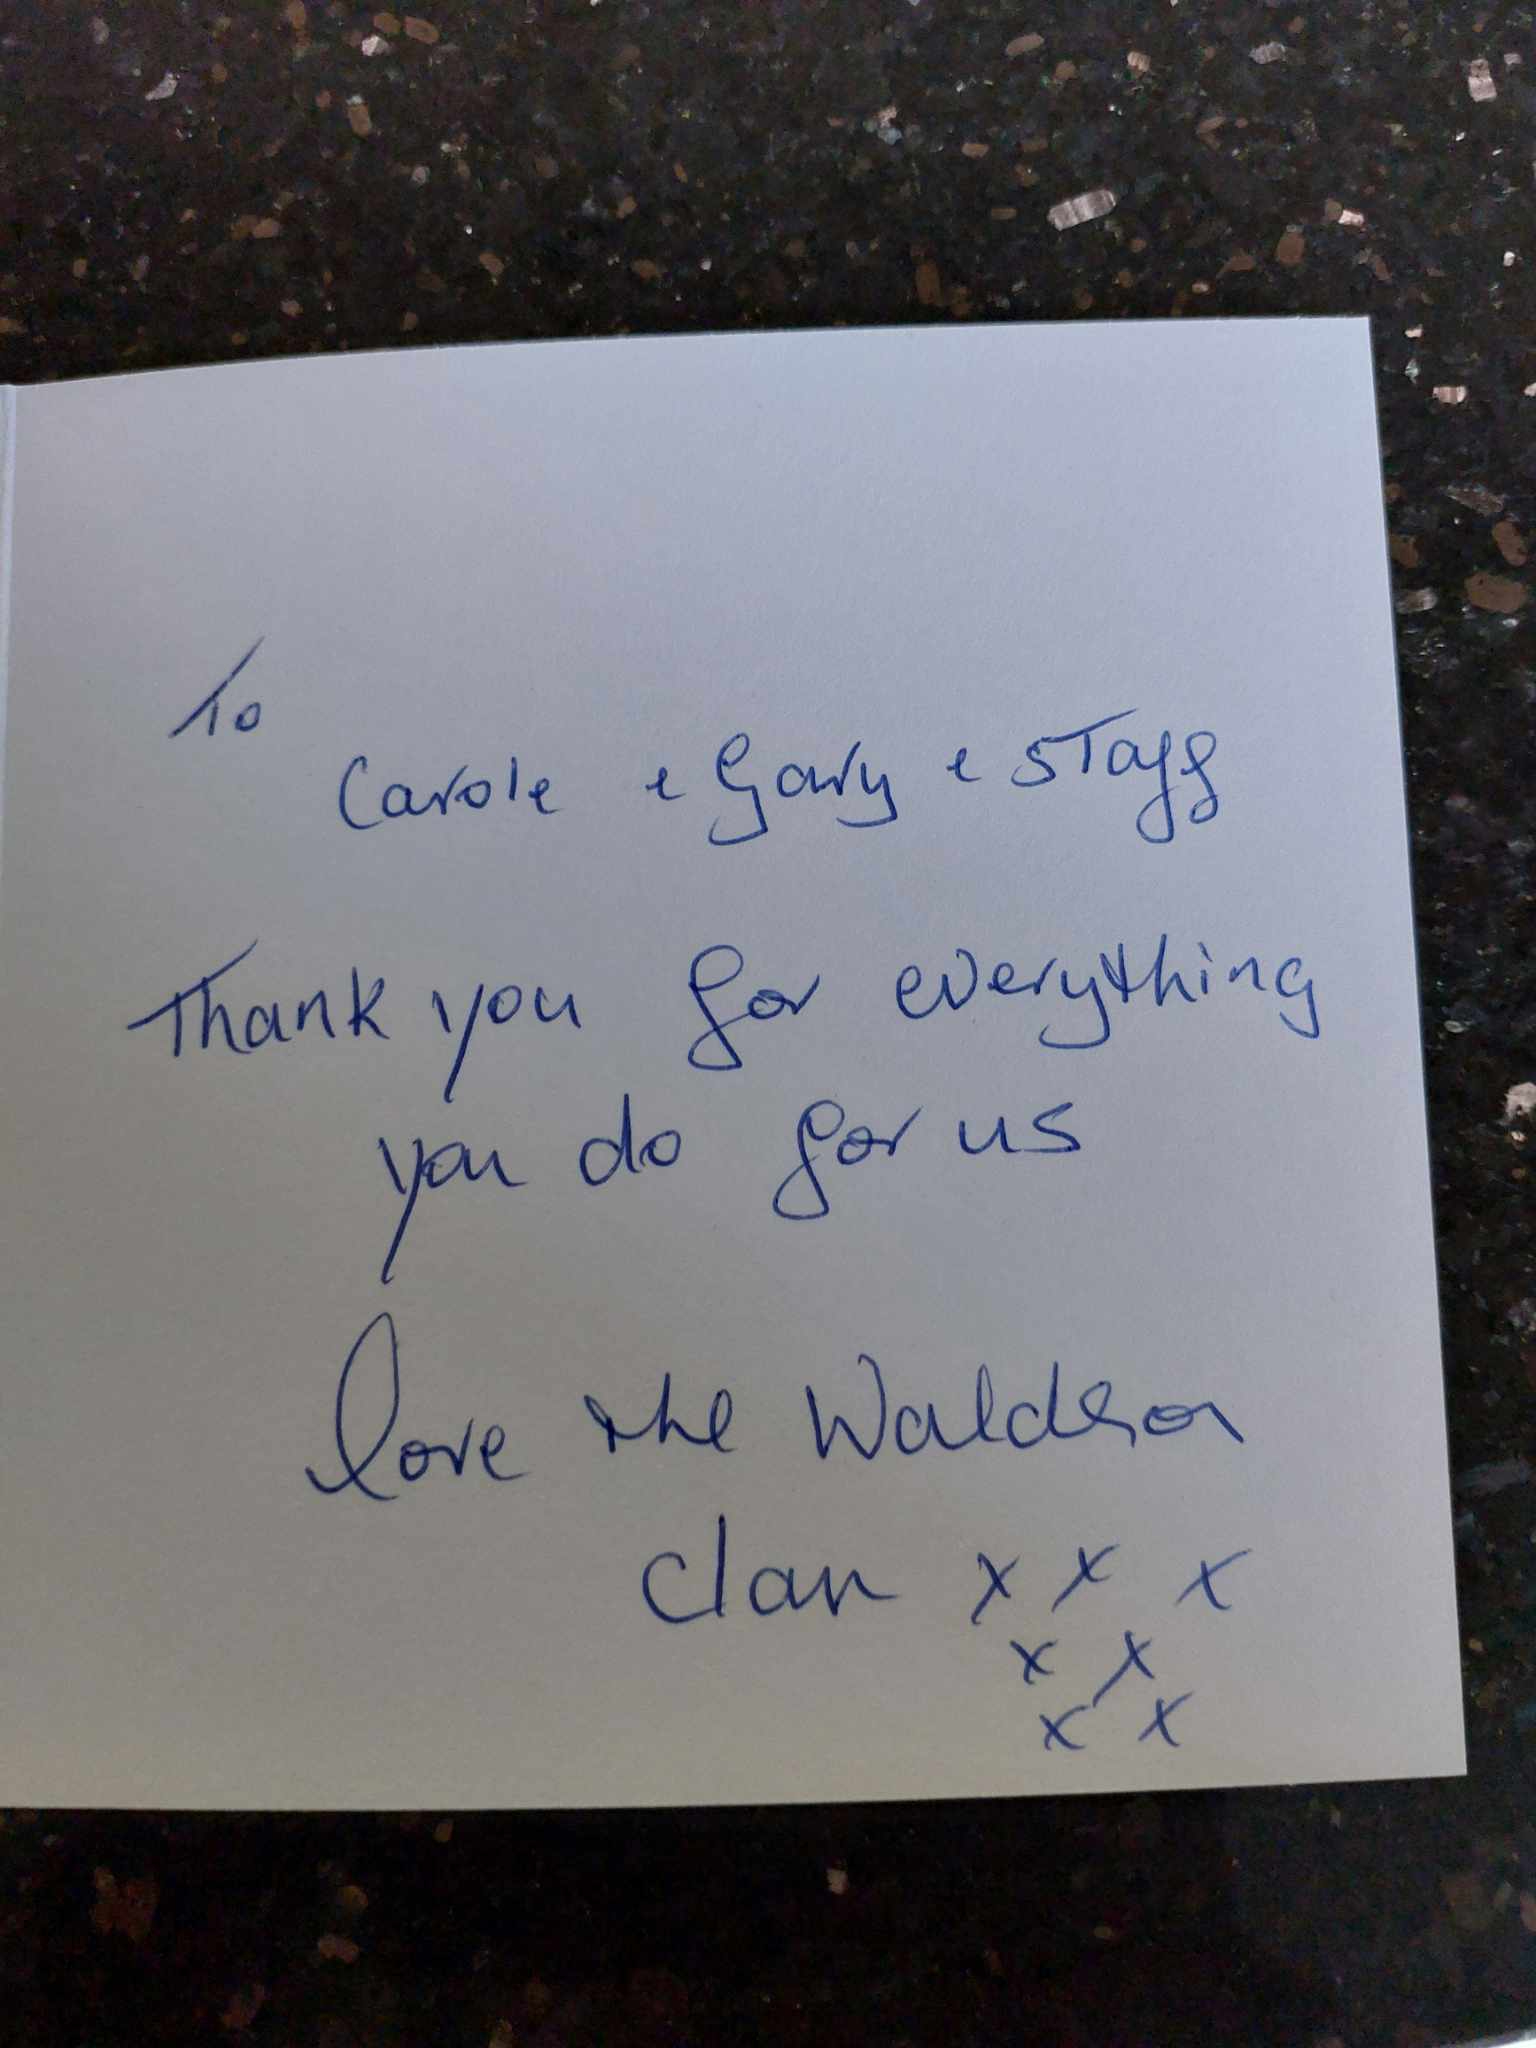 To
Carole & Gary & Staff
Thank you for everything
you do for us
love the Waldson
Clan x x x
x x
x x